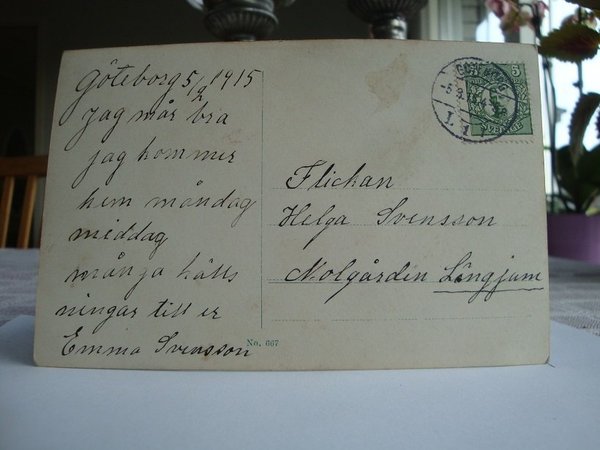 Göteborg 5/2 1915
Jag mår bra
jag kommer
hem måndag
middag
många hälls
ningar till er
Emma Svensson
No. 667
5
Flickan
Helga Svensson
Molgården Långjum